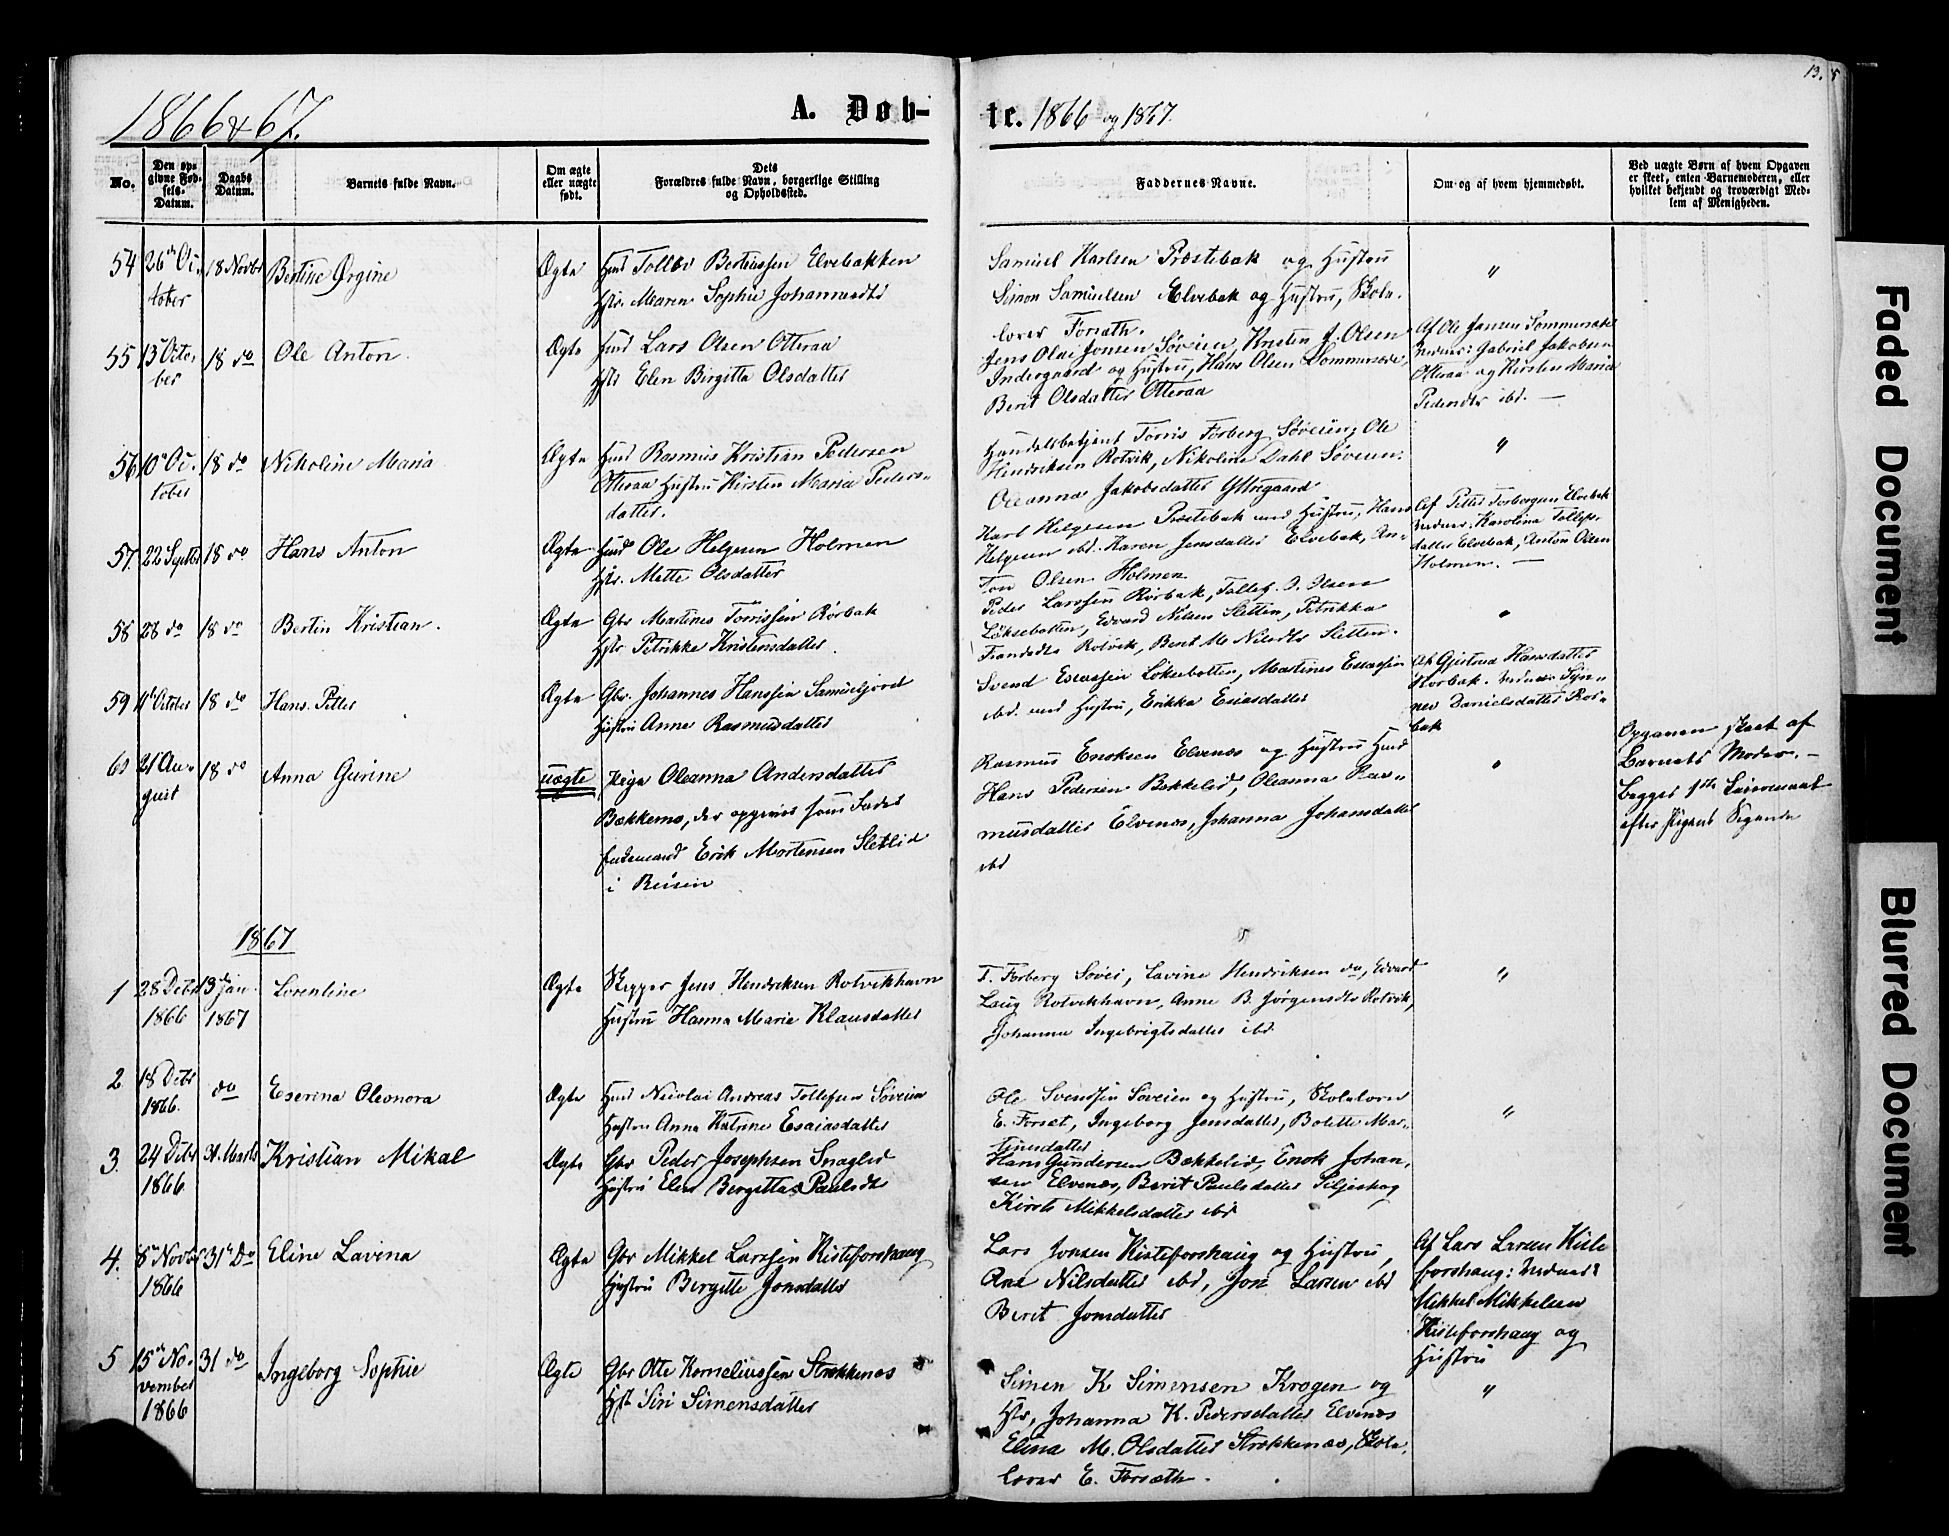 13.
1866 & 67.
A. Døb-
te. 1866 og 1867.
No.
Den op-
givne Fød-
sels-
Datum.
Daabs
Datum.
Barnets fulde Navn.
Om ægte
eller uægte
født.
Dets
Forældres fulde Navn, borgerlige Stilling
og Opholdssted.
Faddernes Navne.
Om og af hvem hjemmedøbt.
Ved uægte Børn af hvem Opgaven
er skeet, enten Barnemoderen, eller
hvilket bekjendt og troværdigt Med-
lem af Menigheden.
54 26de Oc- tober 18 Novbr Bertine Ørgine Ægte
Hmd Tollev Berteussen Elvebakken
Hstr. Maren Sophie Johannesdtr
Samuel Karlsen Præstebak og Hustru
Simon Samuelsen Elvebak og Hustru, Skole-
lærer Forsæth.
"
55 13de Octo- ber 18 do Ole Anton Ægte
Hmd Lars Olsen Otteraa
Hstr Elen Birgitta Olsdatter
Jens Olai Jensen Søveien, Kristen J. Olsen
Indergaard og Hustru, Hans Olsen Sommersæter,
Berit Olsdatter Otteraa
Af Ole Jansen Sommersæter
Vidner: Gabriel Jakobsen
Otteraa og Kirsten Maria
Pedersdtr ibd. —
56 10de Oc- tober 18 do Nikoline Maria Ægte
Hmd Rasmus Kristian Pedersen
Otteraa Hustru Kirsten Maria Peders-
datter.
Handelsbetjent Torris Forberg Søveien, Ole
Hendriksen Rotvik, Nikoline Dahl Søveien.
Oleanna Jakobsdatter Yttregaard
"
57. 22 Septbr 18 do Hans Anton Ægte
Hmd Ole Helgesen Holmen
Hstr. Mette Olsdatter
Karl Helgesen Præstebak med Hustru, Hans
Helgesen ibd. Karen Jensdatter Elvebak, An-
ton Olsen Holmen
Af Petter Torbergsen Elvebak
Vidner: Karolina Tollefs-
datter Elvebak, Anton Olsen
Holmen. —
58 28 do 18 do Bertin Kristian. Ægte
Gbr Martines Torrissen Rørbak
Hstr Petrikke Kristensdatter.
Peder Larssen Rørbak, Tollef O. Olsen
Løksebotten, Edvard Nilsen Sletten, Petrikka
Fransdtr Rotvik, Berit M. Nilsdtr Sletten.
"
59 11te October 18 do Hans Petter Ægte
Gbr. Johannes Hanssen Samueljord
Hustru Anne Rasmusdatter
Svend Esaiassen Løksebotten, Martines Esaiassen
ibd. med Hustru, Erikka Eliasdatter
Af Gjertrud Hansdatter
Rørbak. Vidner: Syn-
nev Danielsdatter Rør-
bak
60 21 Au- gust 18 do Anna Gurine uægte
Pige Oleanna Andersdatter
Bækkemo, der opgives som Barnefader
Erik Mortensen Sletlid
i Reisen
Rasmus Enoksen Elvenes og Hustru, Hmd
Hans Pedersen Bækkelid, Oleanna Ras-
musdatter Elvenes, Johanna Johansdatter
ibd
"
Opgaven skeet af
Barnets Moder. —
Begges 1ste Leiermaal
efter Pigens Sigende
1867
1 28 Debr 1866 13de Jan. 1867 Lorentine Ægte
Skipper Jens Hendriksen Rotvikhavn
Hustru Hanna Marie Klausdatter
T. Forberg Søvei, Lavine Hendriksen do, Edvard
Laug Rotvikhavn, Anne B. Jørgensdtr Rotvik,
Johanna Ingebrigtsdatter ibd
"
2 18 Debr 1866. do Eserina Oleonora Ægte
Hmd Nicolai Andreas Tollefsen Søveien
Hustru Anna Katrine Esaiasdatter
Ole Svendsen Søveien og Hustru, Skolelærer
E. Forsæt, Ingeborg Jensdatter, Bolette Mar-
tinusdatter
"
3. 24 Debr 1866 31. Marts Kristian Mikal Ægte
Gbr Peder Josephsen Snaglid
Hustru Elen Bergitta Paulsdtr
Hans Gundersen Bækkelid, Enok Johan-
sen Elvenes, Berit Paulsdatter Seljeskog
Kirsti Mikkelsdatter ibd
4. 8de Novbr 1866 31te do Eline Lavina Ægte
Gbr Mikkel Larssen Kisteforshaug
Hustru Bergitte Jonsdatter
Lars Jonsen Kisteforshaug og Hustru,
Ane Nilsdatter ibd, Jon Larsen ibd
Berit Jonsdatter
Af Lars Larsen Kiste
forshaug: Vidner:
Mikkel Mikkelsen
Kisteforshaug og
Hustru
5 15de No- vember 1866 31 do Ingeborg Sophie Ægte
Gbr Otte Korneliussen Strokkenæs
Hstr Siri Simensdatter
Simen K Simensen Krogen og
Hstr, Johanna K. Pedersdatter Elvenes
Elina M. Olsdatter Strokkenæs, Skole-
lærer E. Forsæth.
"
Faded Document
Blurred Document